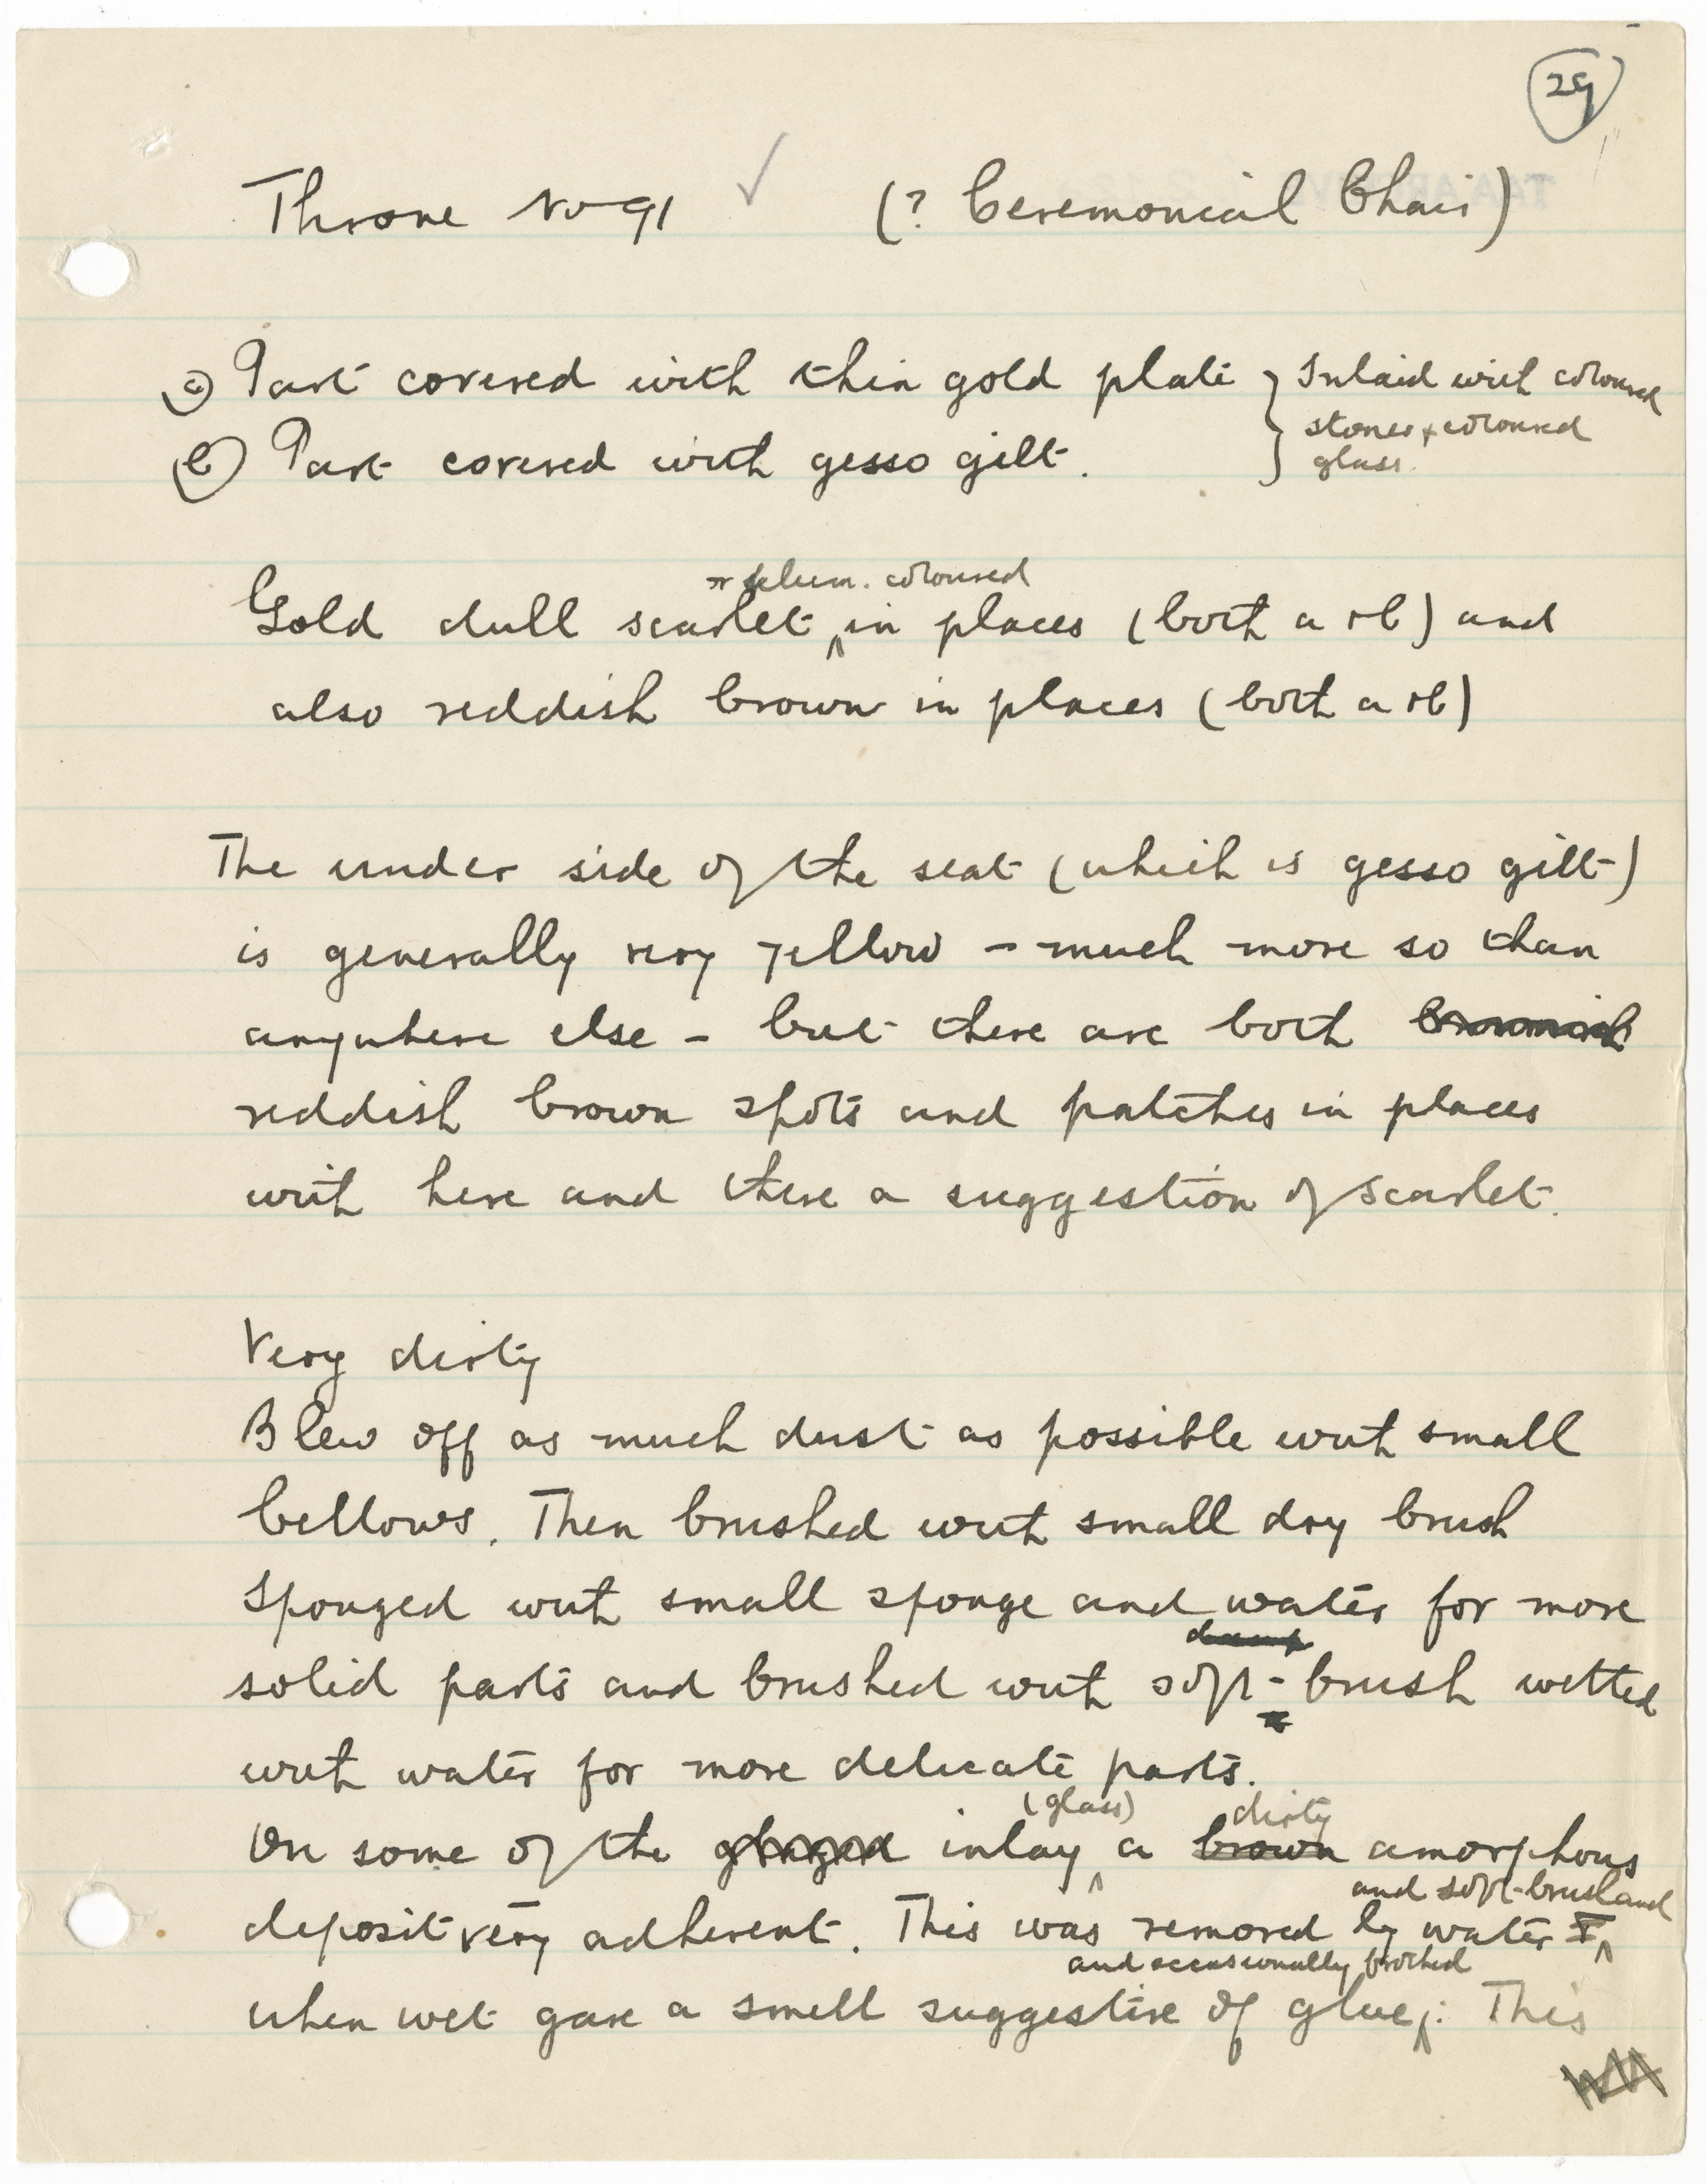 29
Throne No 91 ✓ (? Ceremonial Chair)
(a) Part covered with thin gold plate } Inlaid with coloured
stones + coloured
(b) Part covered with gesso gilt.
glass.
or plum. coloured
Gold dull scarlet ^ in places (both a + b) and
also reddish brown in places (both a + b)
The under side of the seat (which is gesso gilt)
is generally very yellow - much more so than
anywhere else - but there are both brownish
reddish brown spots and patches in places
with here and there a suggestion of scarlet.
Very dirty
Blew off as much dust as possible with small
bellows. Then brushed with small dry brush
Sponged with small sponge and water for more
damp
solid parts and brushed with soft - brush wetted
with water for more delicate parts.
(glass) dirty
On some of the glazed inlay ^ a brown amorphous
and soft-brush and
deposit very adherent. This was removed by water ^
and occasionally frothed
when wet gave a smell suggestive of glue ^. This